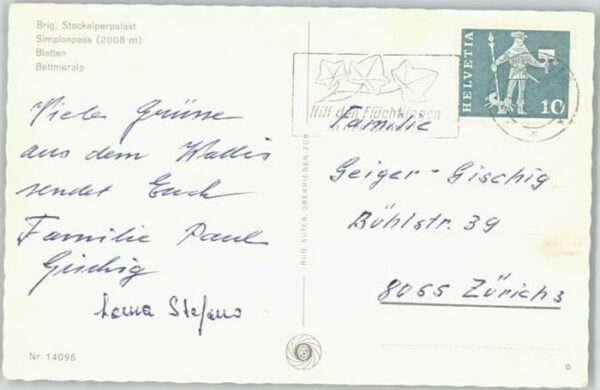 Brig, Stockalperpalast
Simplonpass (2008 m)
Blatten
Bettmeralp
Viele Grüsse
aus dem Wallis
sendet Euch
Familie Paul
Gischig
Stefano
Nr. 14095
HELVETIA
10
Hilf den Flüchtlingen
Familie
Geiger-Gischig
Bühlstr. 39
8055 Zürich 3